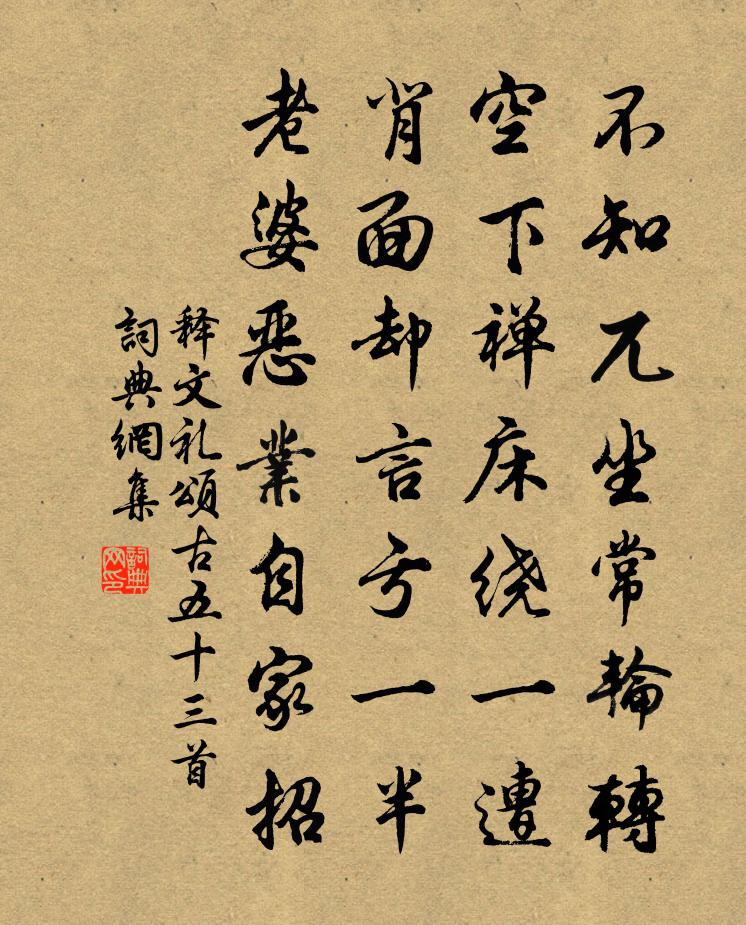 不知兀坐常輪轉
空下禅床绕一遭
背面却言亏一半
老婆恶業自家招
释文礼頌古五十三首
詞典網集
詞典網印